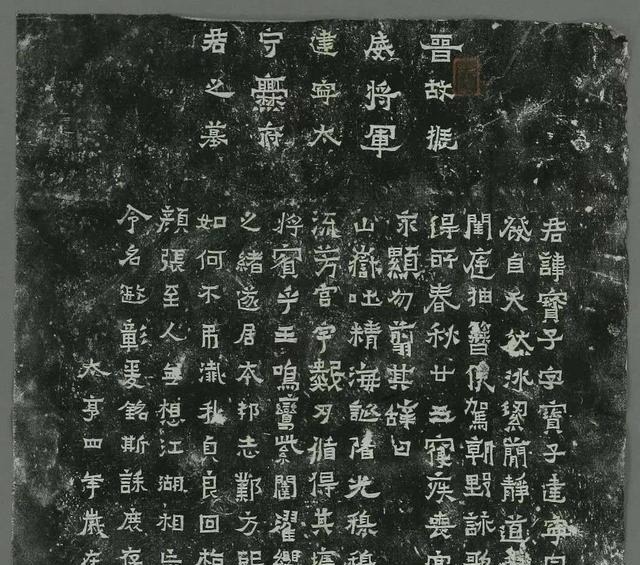 晉故振
威將軍
建寧太
守爨府
君之墓
君諱寶子字寶子建寧同
發自天然冰絜簡靜道兼
閨庭抽簪俟駕朝野詠歌
得所春秋廿五寢疾喪官
永顯勿翦其辭曰
山嶽吐精海誕陼光穆穆
流芳宮宇數仞循得其牆
將賓乎王鳴鸞紫闥濯纓
之緒遂居本邦志鄴方熙
如何不弔殲我貞良回枹
顏張至人無想江湖相忘
令名遐彰爰銘斯誄庶存
太亨四年歲在